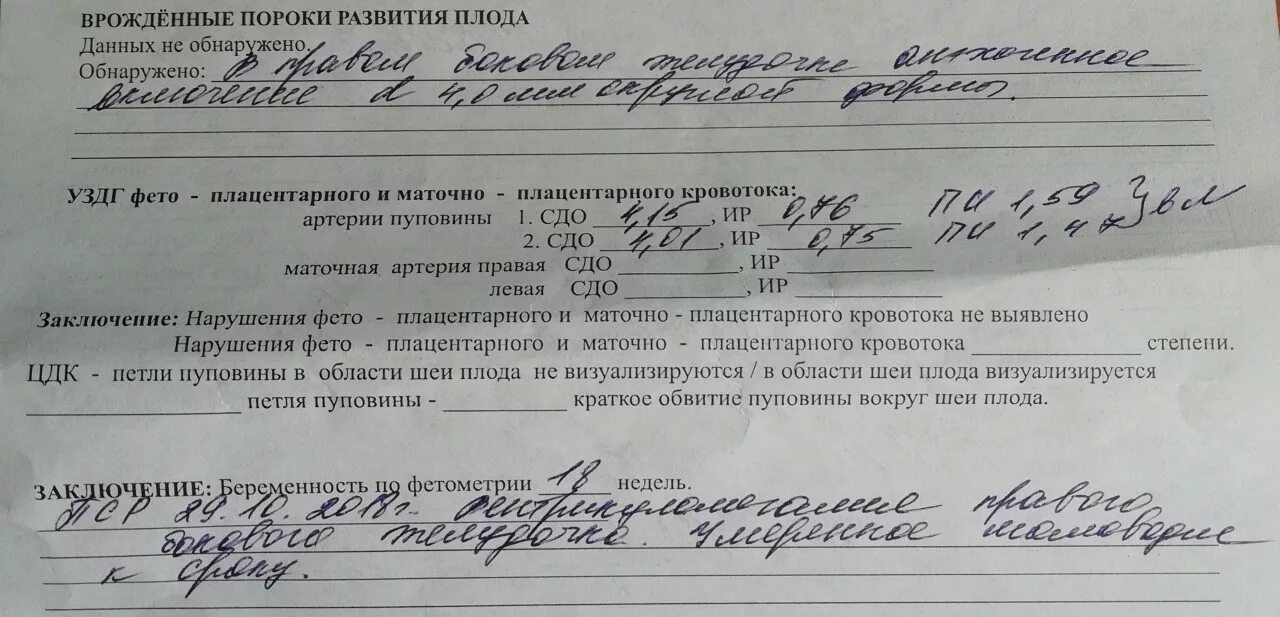 ВРОЖДЁННЫЕ ПОРОКИ РАЗВИТИЯ ПЛОДА
Данных не обнаружено.
Обнаружено: В правом боковом желудочке анэхогенное
включение d 4,0 мм округлой формы.
УЗДГ фето - плацентарного и маточно - плацентарного кровотока:
артерии пуповины 1. СДО 4,15, ИР 0,76 ПИ 1,59
2. СДО 4,01, ИР 0,75 ПИ 1,47 } в N
маточная артерия правая СДО ____________, ИР ______________
левая СДО ____________, ИР ______________
Заключение: Нарушения фето - плацентарного и маточно - плацентарного кровотока не выявлено
Нарушения фето - плацентарного и маточно - плацентарного кровотока ______________ степени.
ЦДК - петли пуповины в области шеи плода не визуализируются / в области шеи плода визуализируется
__________________ петля пуповины - __________ краткое обвитие пуповины вокруг шеи плода.
ЗАКЛЮЧЕНИЕ: Беременность по фетометрии 18 недель.
ПСР 29.10.2018г. Вентрикуломегалия правого
бокового желудочка. Умеренное маловодие
к сроку.